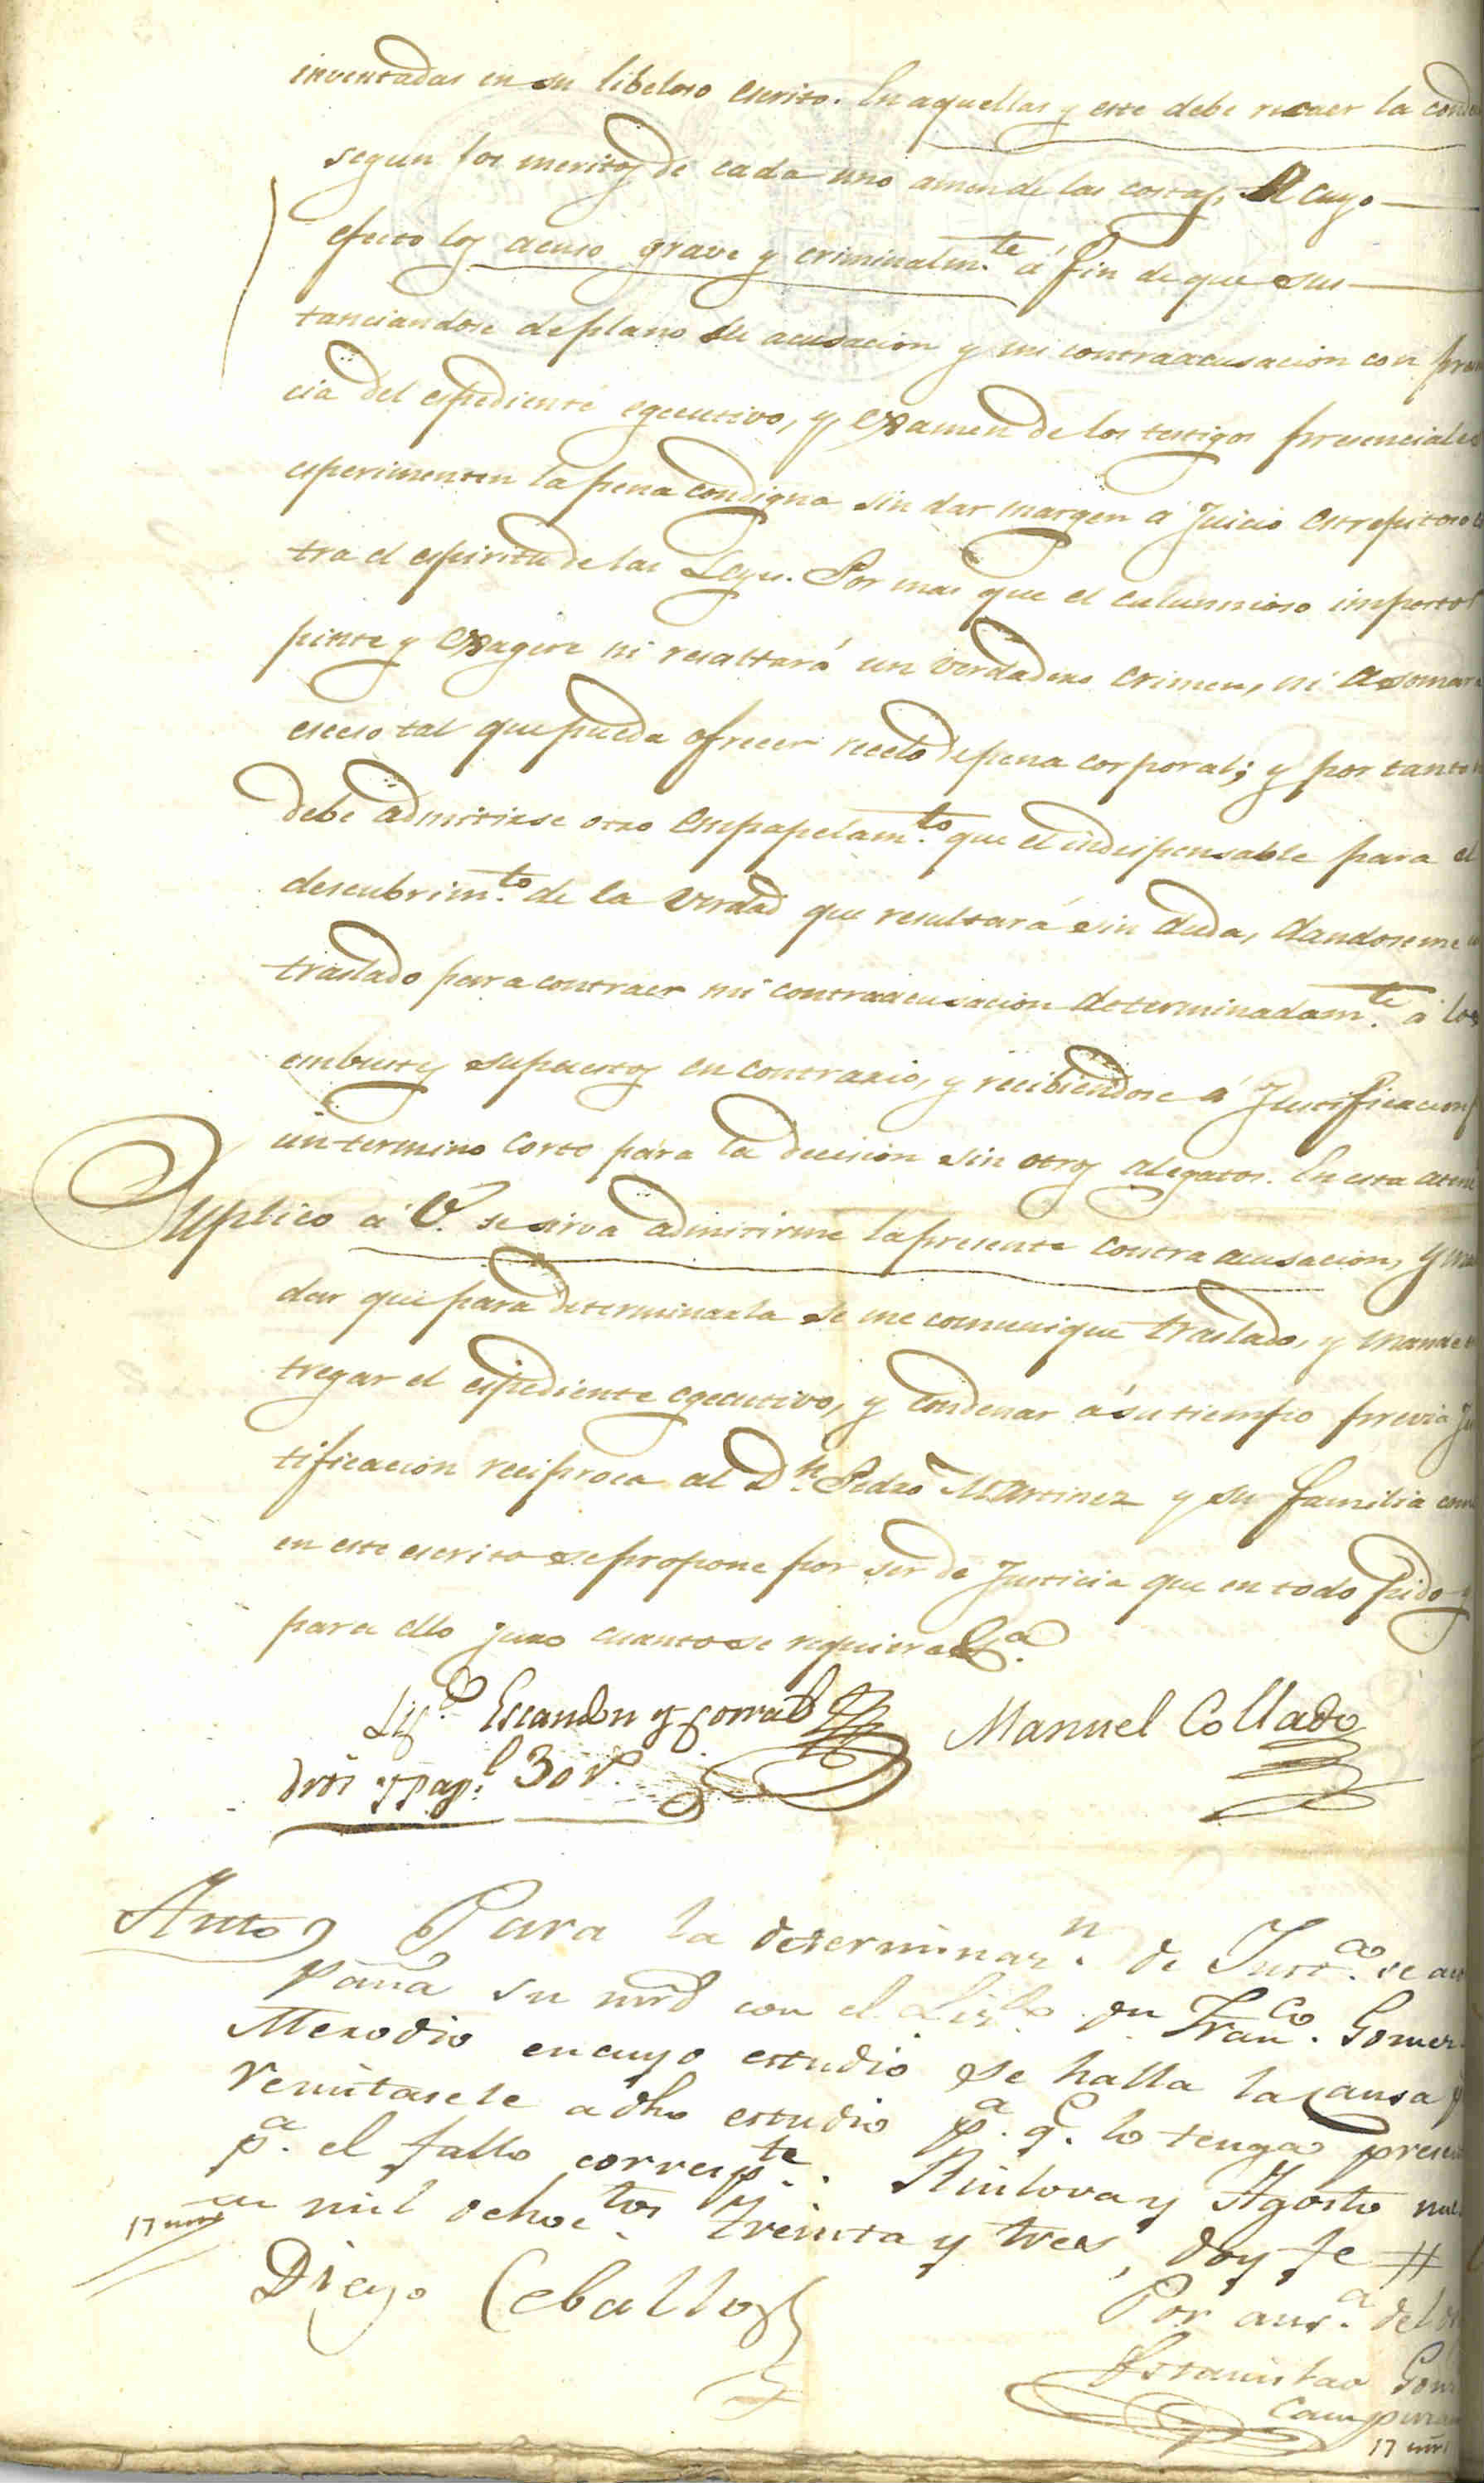 inventadas en su libeloso escrito. En aquellas y este debe recaer la conde
segun los meritos de cada uno amen de las costas, A cuyo
efecto los acuso grave y criminalm.te á fin de que sus
tanciandose de plano su acusacion y mi contraacusacion con presen
cia del espediente egecutivo, y exsamen de los testigos presenciales
esperimenten la pena condigna sin dar margen á Juicio estrepitoso
tra el espiritu de las Leyes. Por mas que el calumnioso impostor
pinte y exsagere ni resaltará un verdadero crimen, ni asomará
esceso tal que pueda ofrecer recelo de pena corporal; y por tanto
debe admitirse otro empapelam.to que el indispensable para el
descubrim.to de la verdad que resultará sin duda, dandoseme
traslado para contraer mi contraacusacion determinadam.te á los
embustes supuestos en contrario, y recibiendose á Justificacion
un termino corto para la decision sin otros alegatos. En esta aten
Suplico á V. se sirva admitirme la presente contra acusacion, y man
dar que para determinarla se me comunique traslado, y mande
tregar el espediente egecutivo, y condenar á su tiempo previa Jus
tificacion reciproca al D.n Pedro Martinez y su familia como
en este escrito se propone por ser de Justicia que en todo pido y
para ello juro cuanto se requiera &.a
Liz.do Escandon y Corral Manuel Collado
dros y pap.l 30 r.s
Auto) Para la determinaz.n de Just.ca se acom
paña su mrd con el Liz.do dn Fran.co Gomez
Merodio en cuyo estudio se halla la causa y
remitasele a dho estudio p.a q.e lo tenga presente
p.a el fallo corresp.te. Rinlova y Agosto
de mil ochoc.tos treinta y tres, doy fe #
17 mrs
Diego Ceballos
Por aus.a del
Estanislao Gonz
Campuzano
17 mrs